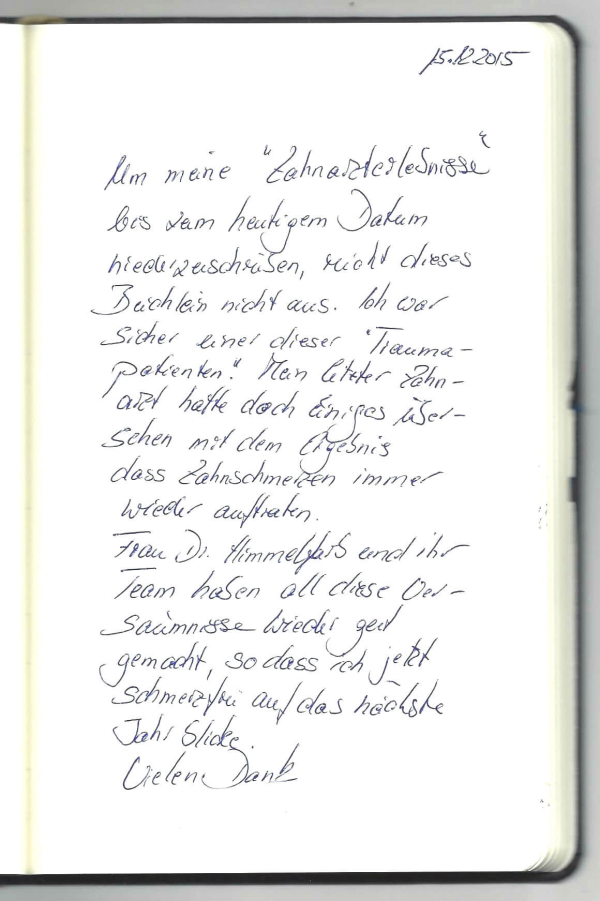 15.12.2015
Um meine "Zahnarzterlebnisse"
bis zum heutigem Datum
niederzuschreiben, reicht dieses
Büchlein nicht aus. Ich war
sicher einer dieser "Trauma-
patienten". Mein letzter Zahn-
arzt hatte doch Einiges über-
sehen mit dem Ergebnis
dass Zahnschmerzen immer
wieder auftraten.
Frau Dr. Himmelfarb und ihr
Team haben all diese Ver-
säumnisse wieder gut
gemacht, so dass ich jetzt
schmerzfrei auf das nächste
Jahr blicke.
Vielen Dank